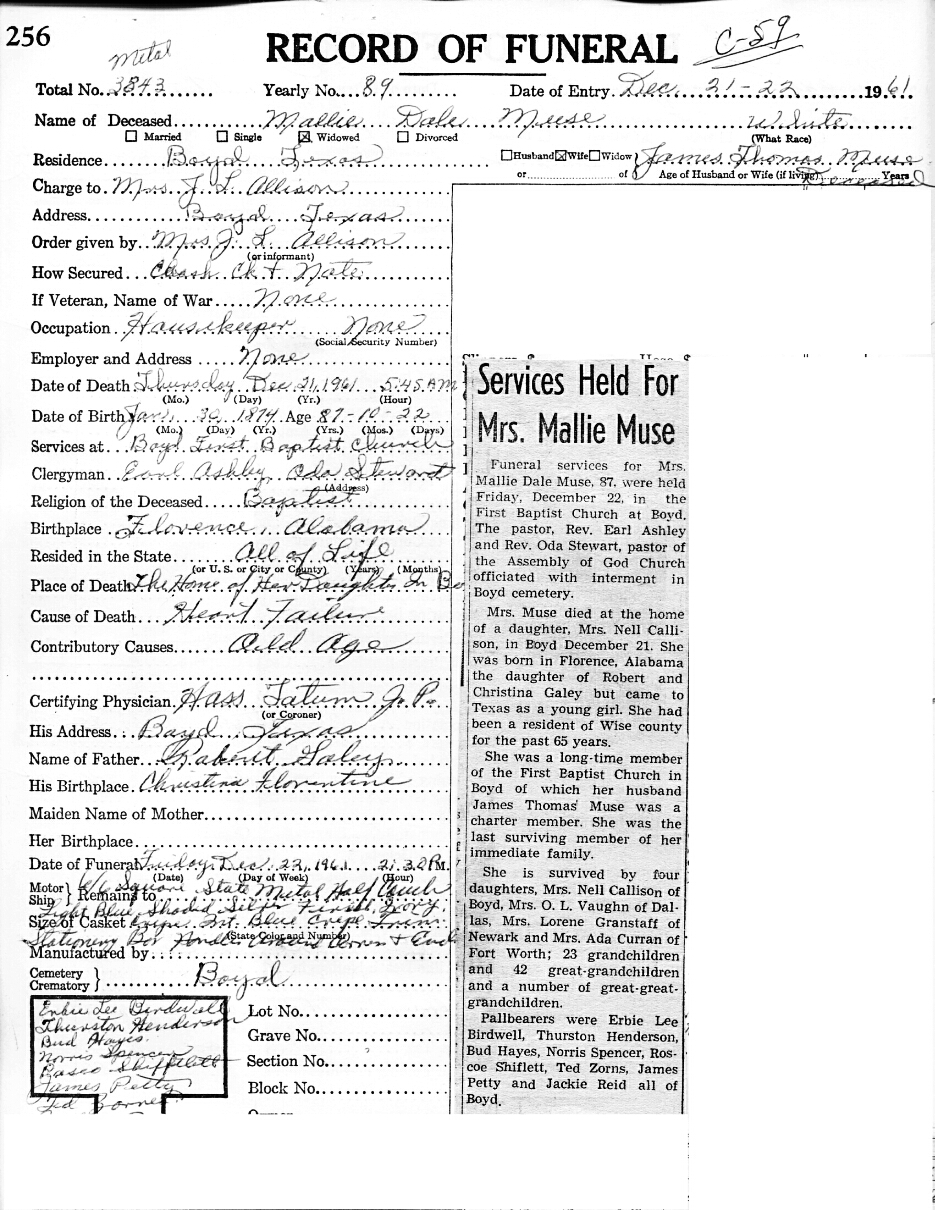 256
Metal
RECORD OF FUNERAL
C-59
Total No. 3843 Yearly No. 89 Date of Entry Dec 21-22 1961
Name of Deceased Mallie Dale Muse White
Married Single Widowed Divorced (What Race)
Residence Boyd Texas Husband Wife Widow James Thomas Muse
or of Age of Husband or Wife (if living) Deceased Years
Charge to Mrs. J. L. Allison
Address Boyd Texas
Order given by Mrs J. L. Allison
(or informant)
How Secured Cash Ck + Note
If Veteran, Name of War None
Occupation Housekeeper None
(Social Security Number)
Employer and Address None
Date of Death Thursday Dec 21, 1961 5:45 AM
(Mo.) (Day) (Yr.) (Hour)
Date of Birth Jan. 30, 1874 Age 87-10-22
(Mo.) (Day) (Yr.) (Yrs.) (Mos.) (Days)
Services at Boyd First Baptist Church
Clergyman Earl Ashley, Oda Stewart
(Address)
Religion of the Deceased Baptist
Birthplace Florence, Alabama
Resided in the State All of Life
(or U. S. or City or County) (Years) (Months)
Place of Death The Home of Her Daughter In Bo
Cause of Death Heart Failure
Contributory Causes Old Age
Certifying Physician Hass Tatum J. P.
(or Coroner)
His Address Boyd Texas
Name of Father Robert Galey
His Birthplace Christina Florentine
Maiden Name of Mother
Her Birthplace
Date of Funeral Friday, Dec. 22, 1961 2:30 PM.
(Date) (Day of Week) (Hour)
Motor Ship Remains to 6/6 Square State Metal Half Couch
Light Blue Shaded Silver Finish, Ivory
Size of Casket Crepe Int. Blue Crepe
(State Color and Number)
Stationery Bar
Manufactured by
Cemetery
Crematory Boyd
Erbie Lee Birdwell
Thurston Henderson
Bud Hayes
Norris Spencer
Rasco Shifflett
James Petty
Ted
Lot No.
Grave No.
Section No.
Block No.
Services Held For
Mrs. Mallie Muse
Funeral services for Mrs.
Mallie Dale Muse, 87, were held
Friday, December 22, in the
First Baptist Church at Boyd.
The pastor, Rev. Earl Ashley
and Rev. Oda Stewart, pastor of
the Assembly of God Church
officiated with interment in
Boyd cemetery.
Mrs. Muse died at the home
of a daughter, Mrs. Nell Calli-
son, in Boyd December 21. She
was born in Florence, Alabama
the daughter of Robert and
Christina Galey but came to
Texas as a young girl. She had
been a resident of Wise county
for the past 65 years.
She was a long-time member
of the First Baptist Church in
Boyd of which her husband
James Thomas Muse was a
charter member. She was the
last surviving member of her
immediate family.
She is survived by four
daughters, Mrs. Nell Callison of
Boyd, Mrs. O. L. Vaughn of Dal-
las, Mrs. Lorene Granstaff of
Newark and Mrs. Ada Curran of
Fort Worth; 23 grandchildren
and 42 great-grandchildren
and a number of great-great-
grandchildren.
Pallbearers were Erbie Lee
Birdwell, Thurston Henderson,
Bud Hayes, Norris Spencer, Ros-
coe Shiflett, Ted Zorns, James
Petty and Jackie Reid all of
Boyd.